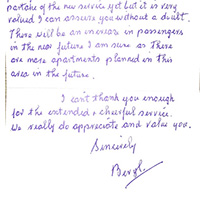 partake of the new service yet but it is very
valued I can assure you without a doubt.
There will be an increase in passengers
in the new future I am sure as There
are more apartments planned in this
area in the future.
I can't thank you enough
for the extended + cheerful service.
We really do appreciate and value you.
Sincerely
Beryl.